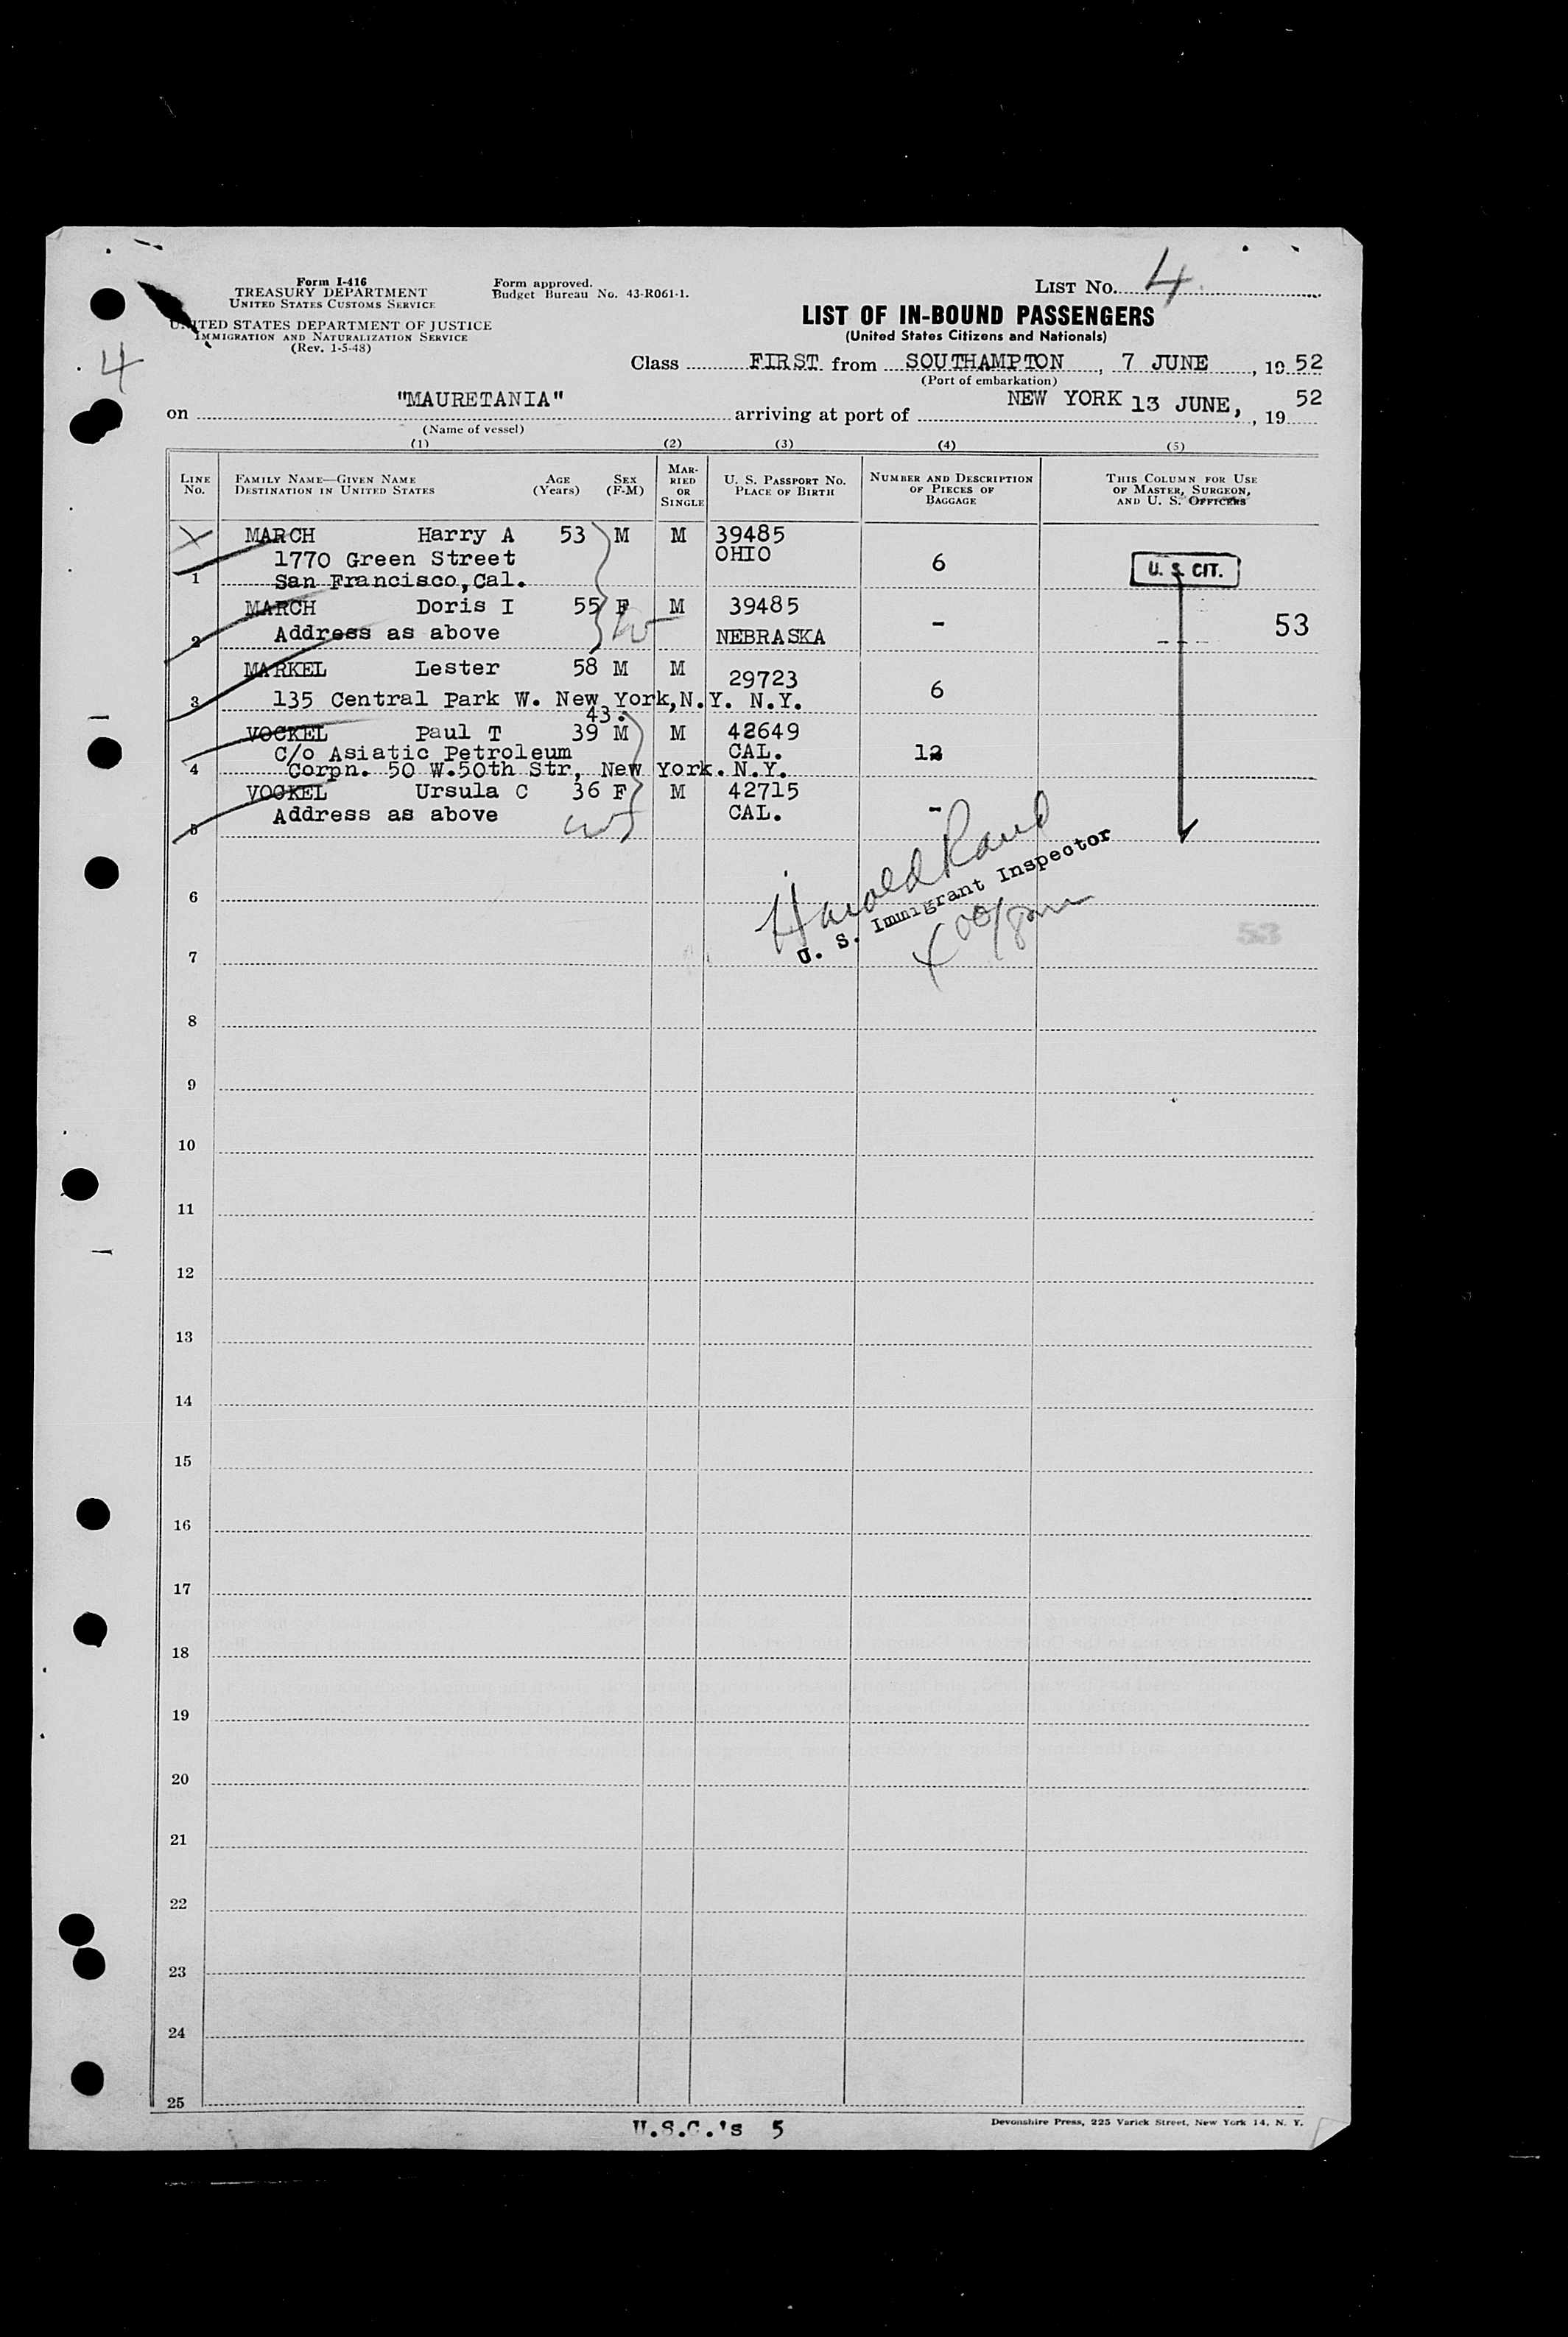 Form I-416
TREASURY DEPARTMENT
UNITED STATES CUSTOMS SERVICE
UNITED STATES DEPARTMENT OF JUSTICE
IMMIGRATION AND NATURALIZATION SERVICE
(Rev. 1-5-48)
Form approved.
Budget Bureau No. 43-R061-1.
LIST No. 4
4
LIST OF IN-BOUND PASSENGERS
(United States Citizens and Nationals)
Class FIRST from SOUTHAMPTON, 7 JUNE, 1952
(Port of embarkation)
on "MAURETANIA" arriving at port of NEW YORK 13 JUNE, , 1952
(Name of vessel)
(1) (2) (3) (4) (5)
LINE No. FAMILY NAME—GIVEN NAME DESTINATION IN UNITED STATES AGE (Years) SEX (F-M) MARRIED OR SINGLE U. S. PASSPORT No. PLACE OF BIRTH NUMBER AND DESCRIPTION OF PIECES OF BAGGAGE THIS COLUMN FOR USE OF MASTER, SURGEON, AND U. S. OFFICERS
MARCH Harry A 53 M M 39485
1770 Green Street OHIO 6 U. S. CIT.
1 San Francisco,Cal.
MARCH Doris I 55 F M 39485 - 53
2 Address as above NEBRASKA
MARKEL Lester 58 M M 29723 6
3 135 Central Park W. New York,N.Y. N.Y.
43.
VOCKEL Paul T 39 M M 42649
C/o Asiatic Petroleum CAL. 12
4 Corpn. 50 W.50th Str, New York. N.Y.
VOCKEL Ursula C 36 F M 42715 -
5 Address as above CAL.
Harold
U. S. Immigrant Inspector
6
7 53
8
9
10
11
12
13
14
15
16
17
18
19
20
21
22
23
24
25
U.S.C.'s 5
Devonshire Press, 225 Varick Street, New York 14, N. Y.